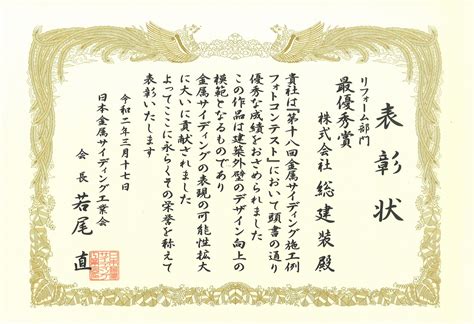 表彰状
リフォーム部門
最優秀賞
株式会社 総建装殿
貴社は「第十八回金属サイディング施工例
フォトコンテスト」において頭書の通り
優秀な成績をおさめられました
この作品は建築外壁のデザイン向上の
模範となるものであり
金属サイディングの表現の可能性拡大
に大いに貢献されました
よってここに永らくその栄誉を称えて
表彰いたします
令和二年三月十七日
日本金属サイディング工業会
会長 若尾 直